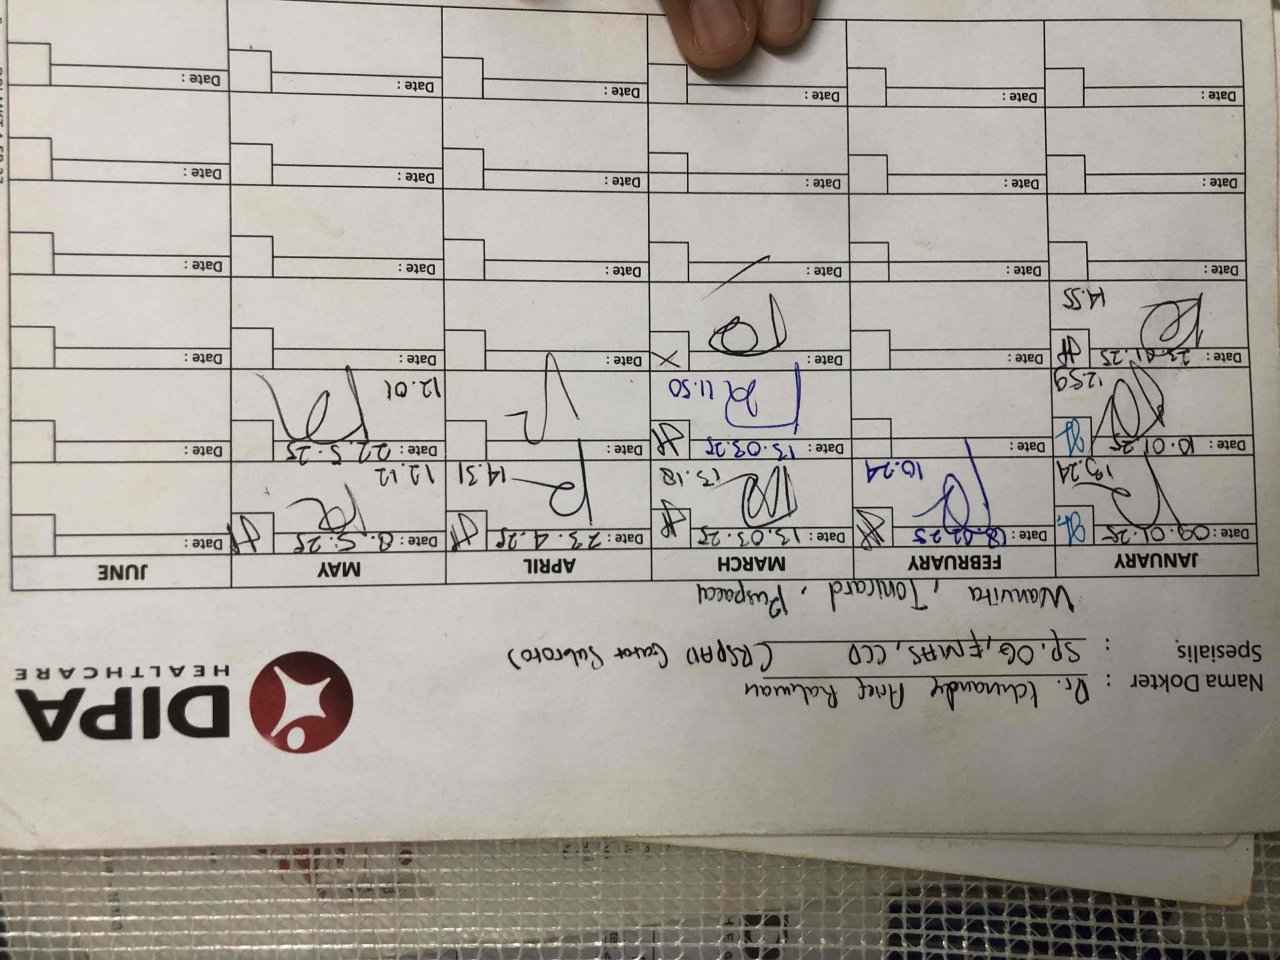 DIPA
HEALTHCARE
Nama Dokter : Dr. Ichnandy Arief Rahman
Spesialis : Sp. OG, FMAS, CCD (RSPAD Gatot Subroto)
Wanvita, Tonicard, Puspaeca
JANUARY FEBRUARY MARCH APRIL MAY JUNE
Date : 09.01.25 Date : 18.02.25 Date : 13.03.25 Date : 23.4.25 Date : 8.5.25 Date :
13.24 10.24 13.18 14.31 12.12
Date : 10.01.25 Date : Date : 13.03.25 Date : Date : 22.5.25 Date :
12.59 11.50 12.01
Date : 23.01.25 Date : Date : Date : Date : Date :
14.55
Date : Date : Date : Date : Date : Date :
Date : Date : Date : Date : Date : Date :
Date : Date : Date : Date : Date : Date :